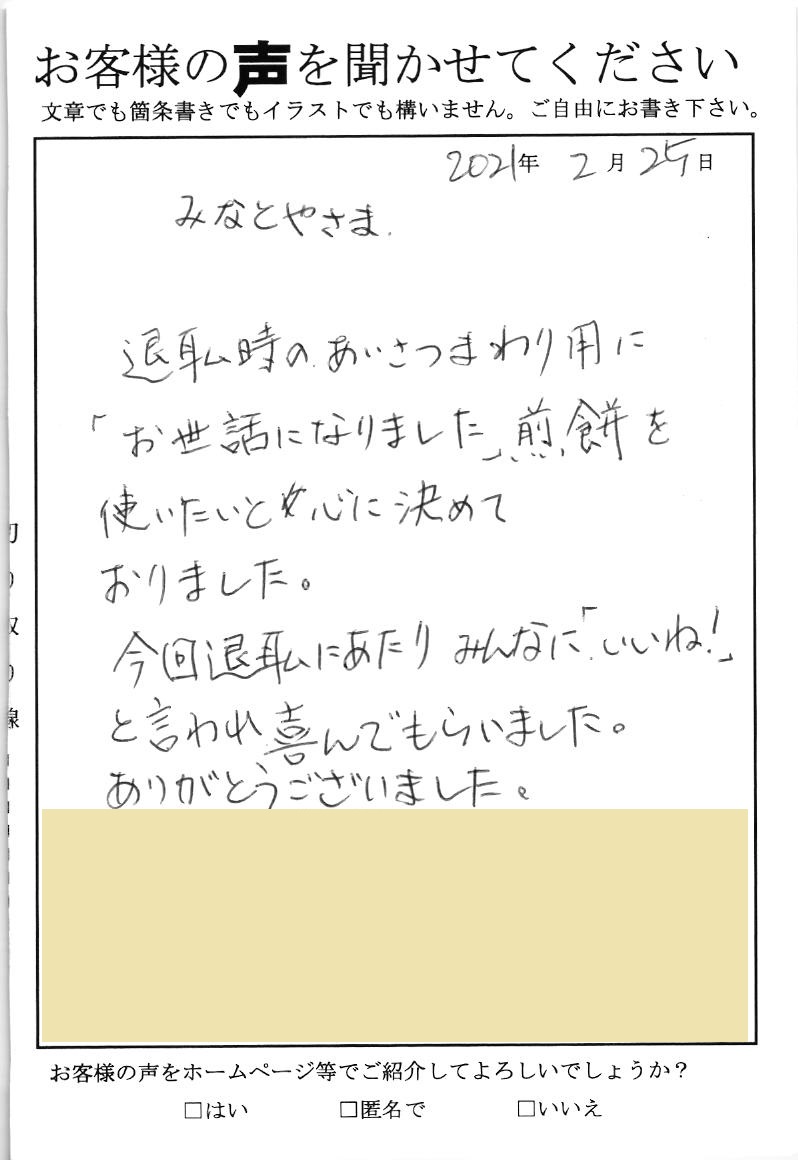 お客様の声を聞かせてください
文章でも箇条書きでもイラストでも構いません。ご自由にお書き下さい。
2021年 2月 25日
みなとやさま.
退職時の あいさつまわり用に
「お世話になりました」煎餅を
使いたいと 心に決めて
おりました。
今回退職にあたり みんなに「いいね!」
と言われ 喜んでもらいました。
ありがとうございました。
切り取り線
お客様の声をホームページ等でご紹介してよろしいでしょうか？
□はい □匿名で □いいえ